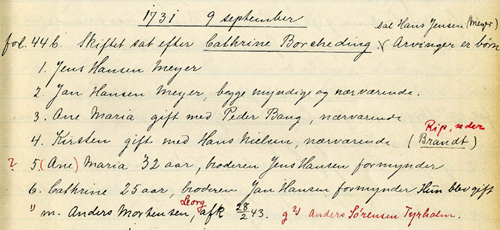 1731 9 september
sal Hans Jensen (Meyer)
fol. 446. Skiftet sat efter Cathrine Borchreding Arvinger er børn
1. Jens Hansen Meyer
2. Jan Hansen Meyer, begge myndige og nærværende.
3. Ane Maria gift med Peder Bang, nærværende
Rip, se der
4. Kirsten gift med Hans Nielsen, nærværende (Brandt)
? 5 (Ane) Maria 32 aar, broderen Jens Hansen formynder
6. Cathrine 25 aar, broderen Jan Hansen formynder Hun blev gift
Georg
" m. Anders Mortensen, afk 28/2 43. g² Anders Sørensen Tyrholm.